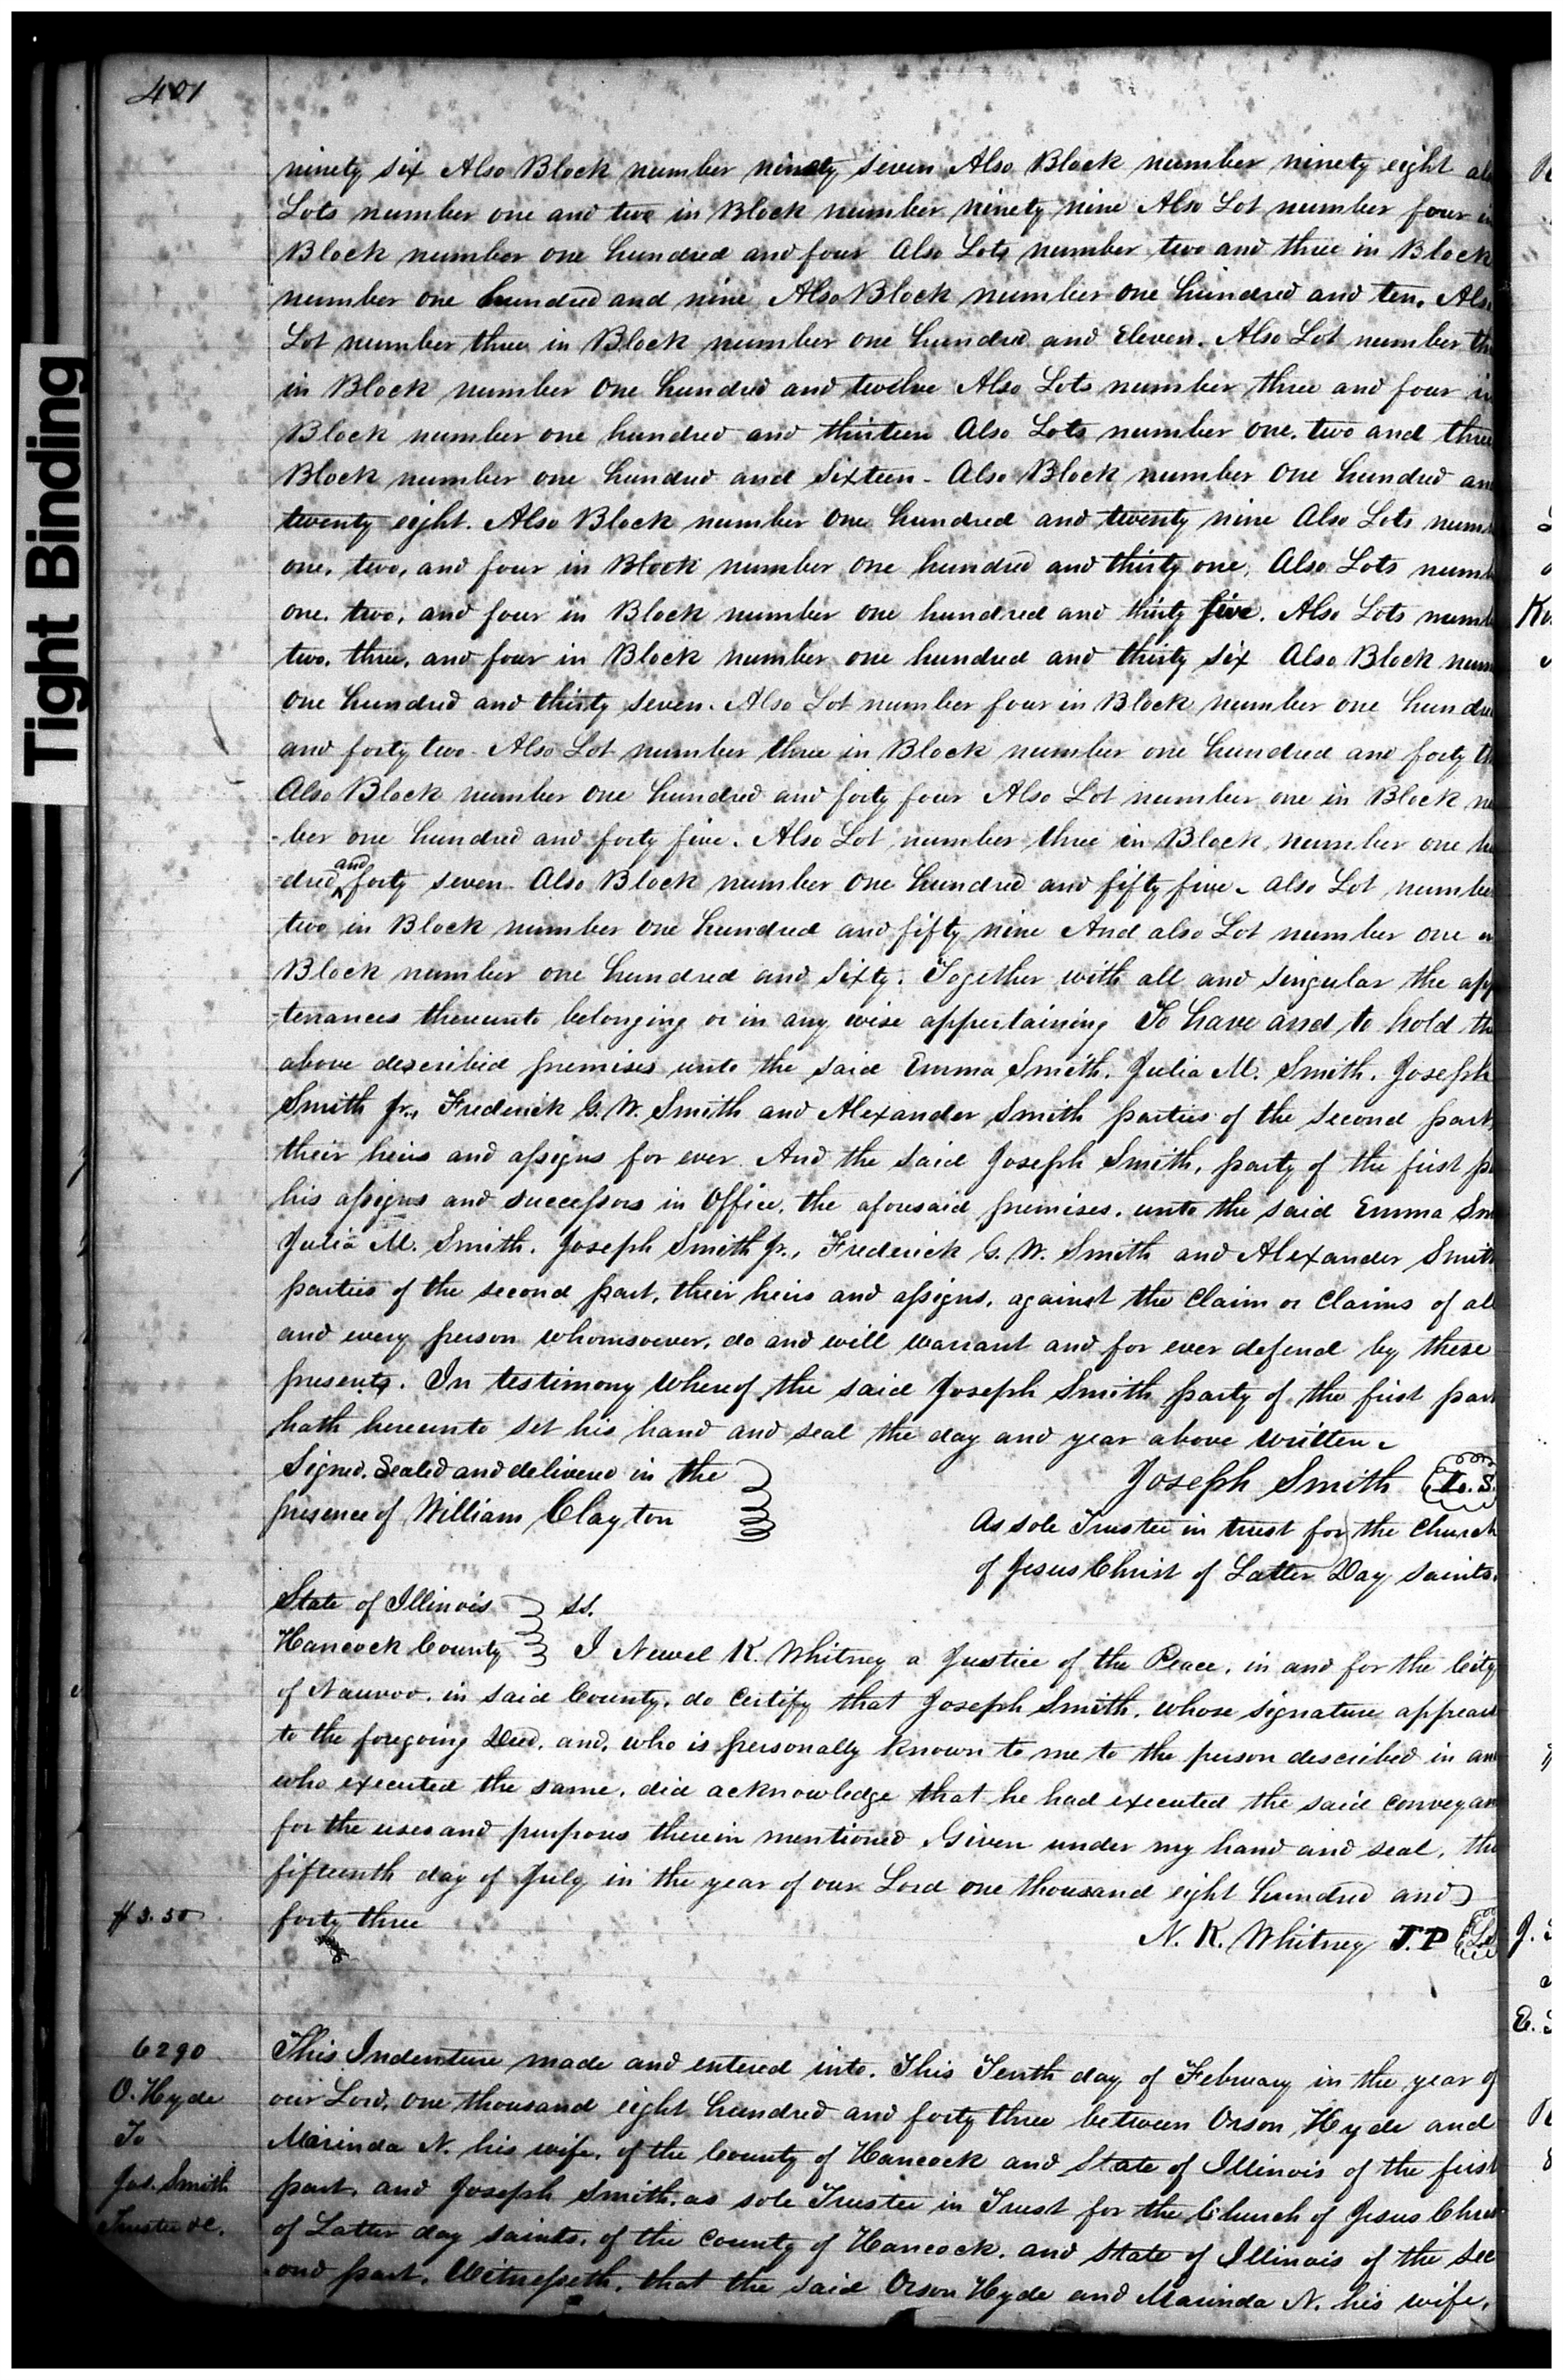 401
Tight Binding
ninety six Also Block number ninety seven Also Block number ninety eight als
Lots number one and two in Block number ninety nine Also Lot number four in
Block number one hundred and four Also Lots number two and three in Block
number one hundred and nine Also Block number one hundred and ten. Also
Lot number three in Block number one hundred and Eleven. Also Lot number th
in Block number one hundred and twelve Also Lots number three and four in
Block number one hundred and thirteen Also Lots number one. two and three
Block number one hundred and Sixteen - Also Block number one hundred an
twenty eight. Also Block number one hundred and twenty nine Also Lots num
one, two, and four in Block number one hundred and thirty one, Also Lots numb
one. two, and four in Block number one hundred and thirty five. Also Lots numb
two. three, and four in Block number one hundred and thirty six Also Block num
one hundred and thirty seven. Also Lot number four in Block number one hundre
and forty two - Also Lot number three in Block number one hundred and forty th
Also Block number one hundred and forty four Also Lot number one in Block nu
-ber one hundred and forty five. Also Lot number three in Block number one hu
-dred and forty seven - Also Block number one hundred and fifty five - also Lot number
two in Block number one hundred and fifty nine And also Lot number one in
Block number one hundred and Sixty. Together with all and singular the app
-tenances thereunto belonging or in any wise appertaining To have and to hold the
above described premises unto the said Emma Smith. Julia M. Smith. Joseph
Smith Jr., Frederick G. W. Smith and Alexander Smith parties of the second part,
their heirs and assigns for ever. And the said Joseph Smith, party of the first pa
his assigns and successors in Office, the aforesaid premises, unto the said Emma Sm
Julia M. Smith. Joseph Smith Jr., Frederick G. W. Smith and Alexander Smith
parties of the second part, their heirs and assigns, against the Claim or Claims of all
and every person whomsoever, do and will warrant and for ever defend by these
presents. In testimony whereof the said Joseph Smith party of the first part
hath hereunto set his hand and seal the day and year above written -
Signed, Sealed and delivered in the
presence of William Clayton
Joseph Smith L. S.
As sole Trustee in trust for the Church
of Jesus Christ of Latter Day Saints.
State of Illinois ss.
Hancock County I Newel K. Whitney a Justice of the Peace, in and for the City
of Nauvoo, in said County, do certify that Joseph Smith, whose signature appears
to the foregoing Deed, and, who is personally known to me to the person described in an
who executed the same, did acknowledge that he had executed the said conveyan
for the uses and purposes therein mentioned Given under my hand and seal, this
fifteenth day of July in the year of our Lord one thousand eight hundred and
forty three
$3.50
N. K. Whitney J. P LS
6290
O. Hyde
To
Jos. Smith
Trustee &c.
This Indenture made and entered into. This Tenth day of February in the year of
our Lord, one thousand eight hundred and forty three between Orson Hyde and
Marinda N. his wife, of the County of Hancock and State of Illinois of the first
part, and Joseph Smith, as sole Trustee in Trust for the Church of Jesus Christ
of Latter day saints, of the County of Hancock. and State of Illinois of the sec
-ond part, Witnesseth, that the said Orson Hyde and Marinda N. his wife,